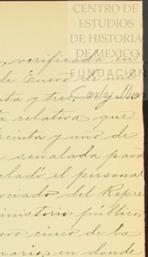 CENTRO DE
ESTUDIOS
DE HISTORIA
DE MEXICO
FUNDACIÓN
verificada en
de Enero de mil
ta y tres,
ta relativa que
reinta y uno de
señalada para
lado el personal
ociado del Repre
inisterio público,
ero cinco de la
en donde